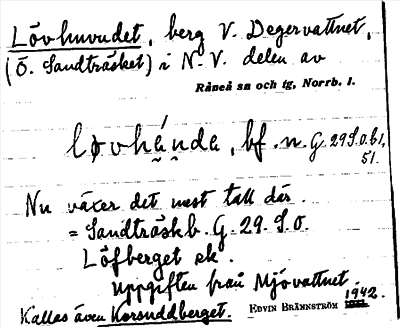 Lövhuvudet, berg V. Degervattnet,
(Ö. Sandträsket) i N.V. delen av
Råneå sn och tg, Norrb. l.
bf. n. G. 29 S.o. b1,
51.
Nu växer det mest tall där.
= Sandträskb. G. 29. S.o.
Löfberget ek.
Uppgiften från Mjövattnet
Kallas även Korsuddberget. EDVIN BRÄNNSTRÖM 1942.